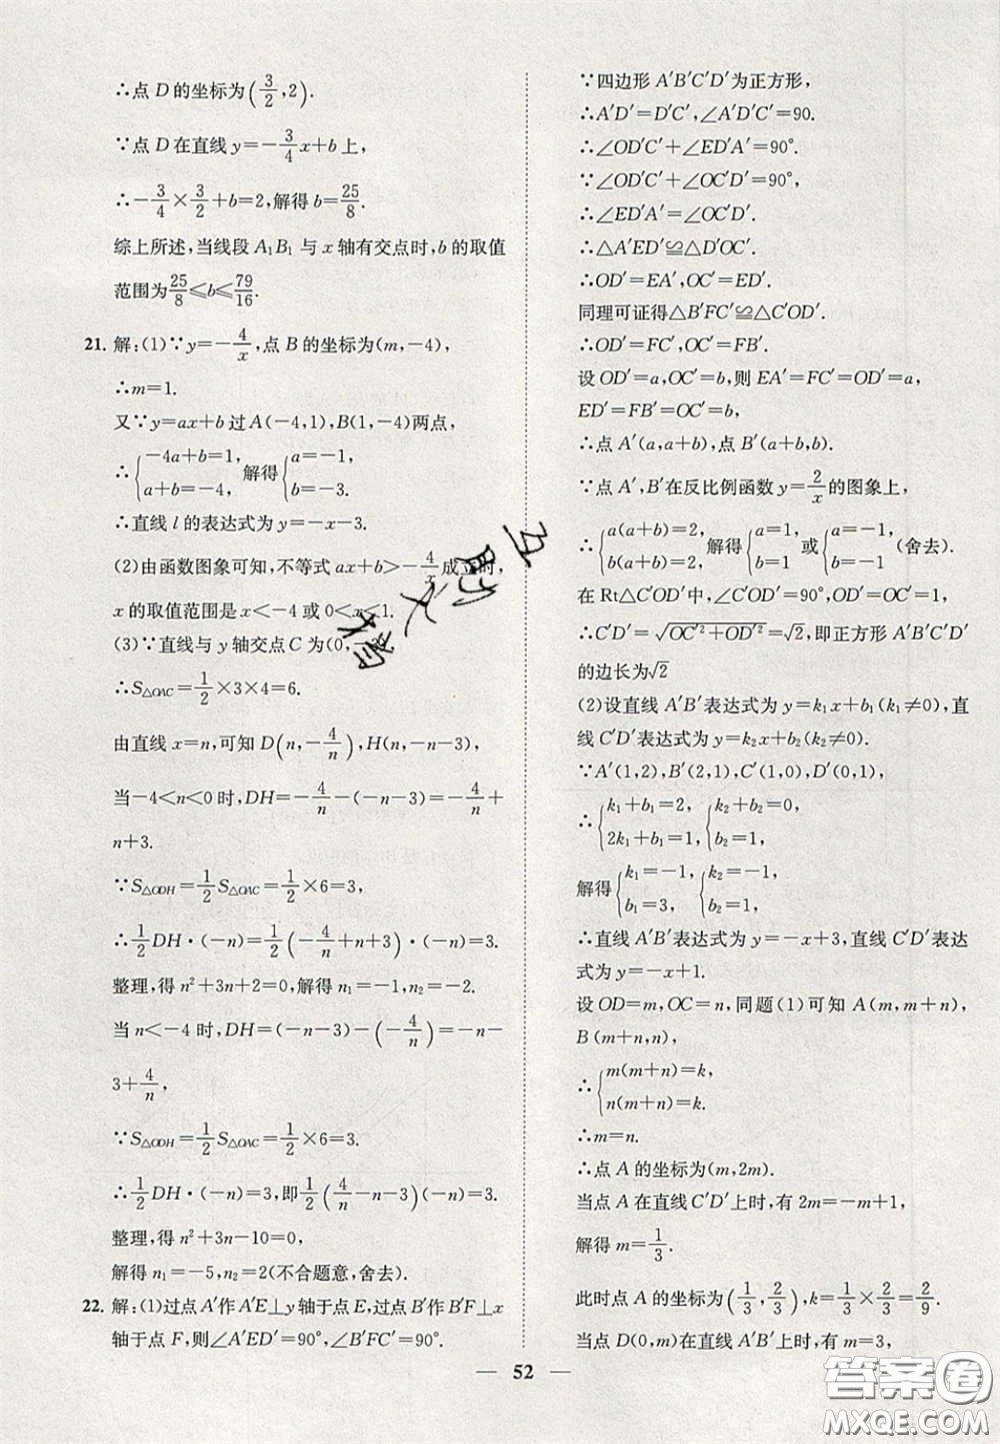 ∴点D的坐标为(3/2,2).
∵点D在直线y=-3/4x+b上,
∴-3/4×3/2+b=2,解得b=25/8.
综上所述,当线段A₁B₁与x轴有交点时,b的取值
范围为25/8≤b≤79/16.
21. 解:(1)∵y=-4/x,点B的坐标为(m,-4),
∴m=1.
又∵y=ax+b过A(-4,1),B(1,-4)两点,
∴{-4a+b=1, a+b=-4, 解得{a=-1, b=-3.
∴直线l的表达式为y=-x-3.
(2)由函数图象可知,不等式ax+b>-4/x成立时,
x的取值范围是x<-4或0<x<1.
(3)∵直线与y轴交点C为(0,
∴S△OAC=1/2×3×4=6.
由直线x=n,可知D(n,-4/n),H(n,-n-3),
当-4<n<0时,DH=-4/n-(-n-3)=-4/n+
n+3.
∵S△ODH=1/2S△OAC=1/2×6=3.
∴1/2DH·(-n)=1/2(-4/n+n+3)·(-n)=3.
整理,得n²+3n+2=0,解得n₁=-1,n₂=-2.
当n<-4时,DH=(-n-3)-(-4/n)=-n-
3+4/n,
∵S△ODH=1/2S△OAC=1/2×6=3.
∴1/2DH·(-n)=3,即1/2(4/n-n-3)(-n)=3.
整理,得n²+3n-10=0,
解得n₁=-5,n₂=2(不合题意,舍去).
22. 解:(1)过点A′作A′E⊥y轴于点E,过点B′作B′F⊥x
轴于点F,则∠A′ED′=90°,∠B′FC′=90°.
∵四边形A′B′C′D′为正方形,
∴A′D′=D′C′,∠A′D′C′=90.
∴∠OD′C′+∠ED′A′=90°.
∵∠OD′C′+∠OC′D′=90°,
∴∠ED′A′=∠OC′D′.
∴△A′ED′≌△D′OC′.
∴OD′=EA′,OC′=ED′.
同理可证得△B′FC′≌△C′OD′.
∴OD′=FC′,OC′=FB′.
设OD′=a,OC′=b,则EA′=FC′=OD′=a,
ED′=FB′=OC′=b,
∴点A′(a,a+b),点B′(a+b,b).
∵点A′,B′在反比例函数y=2/x的图象上,
∴{a(a+b)=2, b(a+b)=2, 解得{a=1, b=1 或{a=-1, b=-1 (舍去).
在Rt△C′OD′中,∠C′OD′=90°,OD′=OC′=1,
∴C′D′=√(OC′²+OD′²)=√2,即正方形A′B′C′D′
的边长为√2
(2)设直线A′B′表达式为y=k₁x+b₁(k₁≠0),直
线C′D′表达式为y=k₂x+b₂(k₂≠0).
∵A′(1,2),B′(2,1),C′(1,0),D′(0,1),
∴{k₁+b₁=2, 2k₁+b₁=1, {k₂+b₂=0, b₂=1,
解得{k₁=-1, b₁=3, {k₂=-1, b₂=1.
∴直线A′B′表达式为y=-x+3,直线C′D′表达
式为y=-x+1.
设OD=m,OC=n,同题(1)可知A(m,m+n),
B(m+n,n)
∴{m(m+n)=k, n(m+n)=k.
∴m=n.
∴点A的坐标为(m,2m).
当点A在直线C′D′上时,有2m=-m+1,
解得m=1/3.
此时点A的坐标为(1/3,2/3),k=1/3×2/3=2/9.
当点D(0,m)在直线A′B′上时,有m=3,
52
答案卷
MXQE.COM